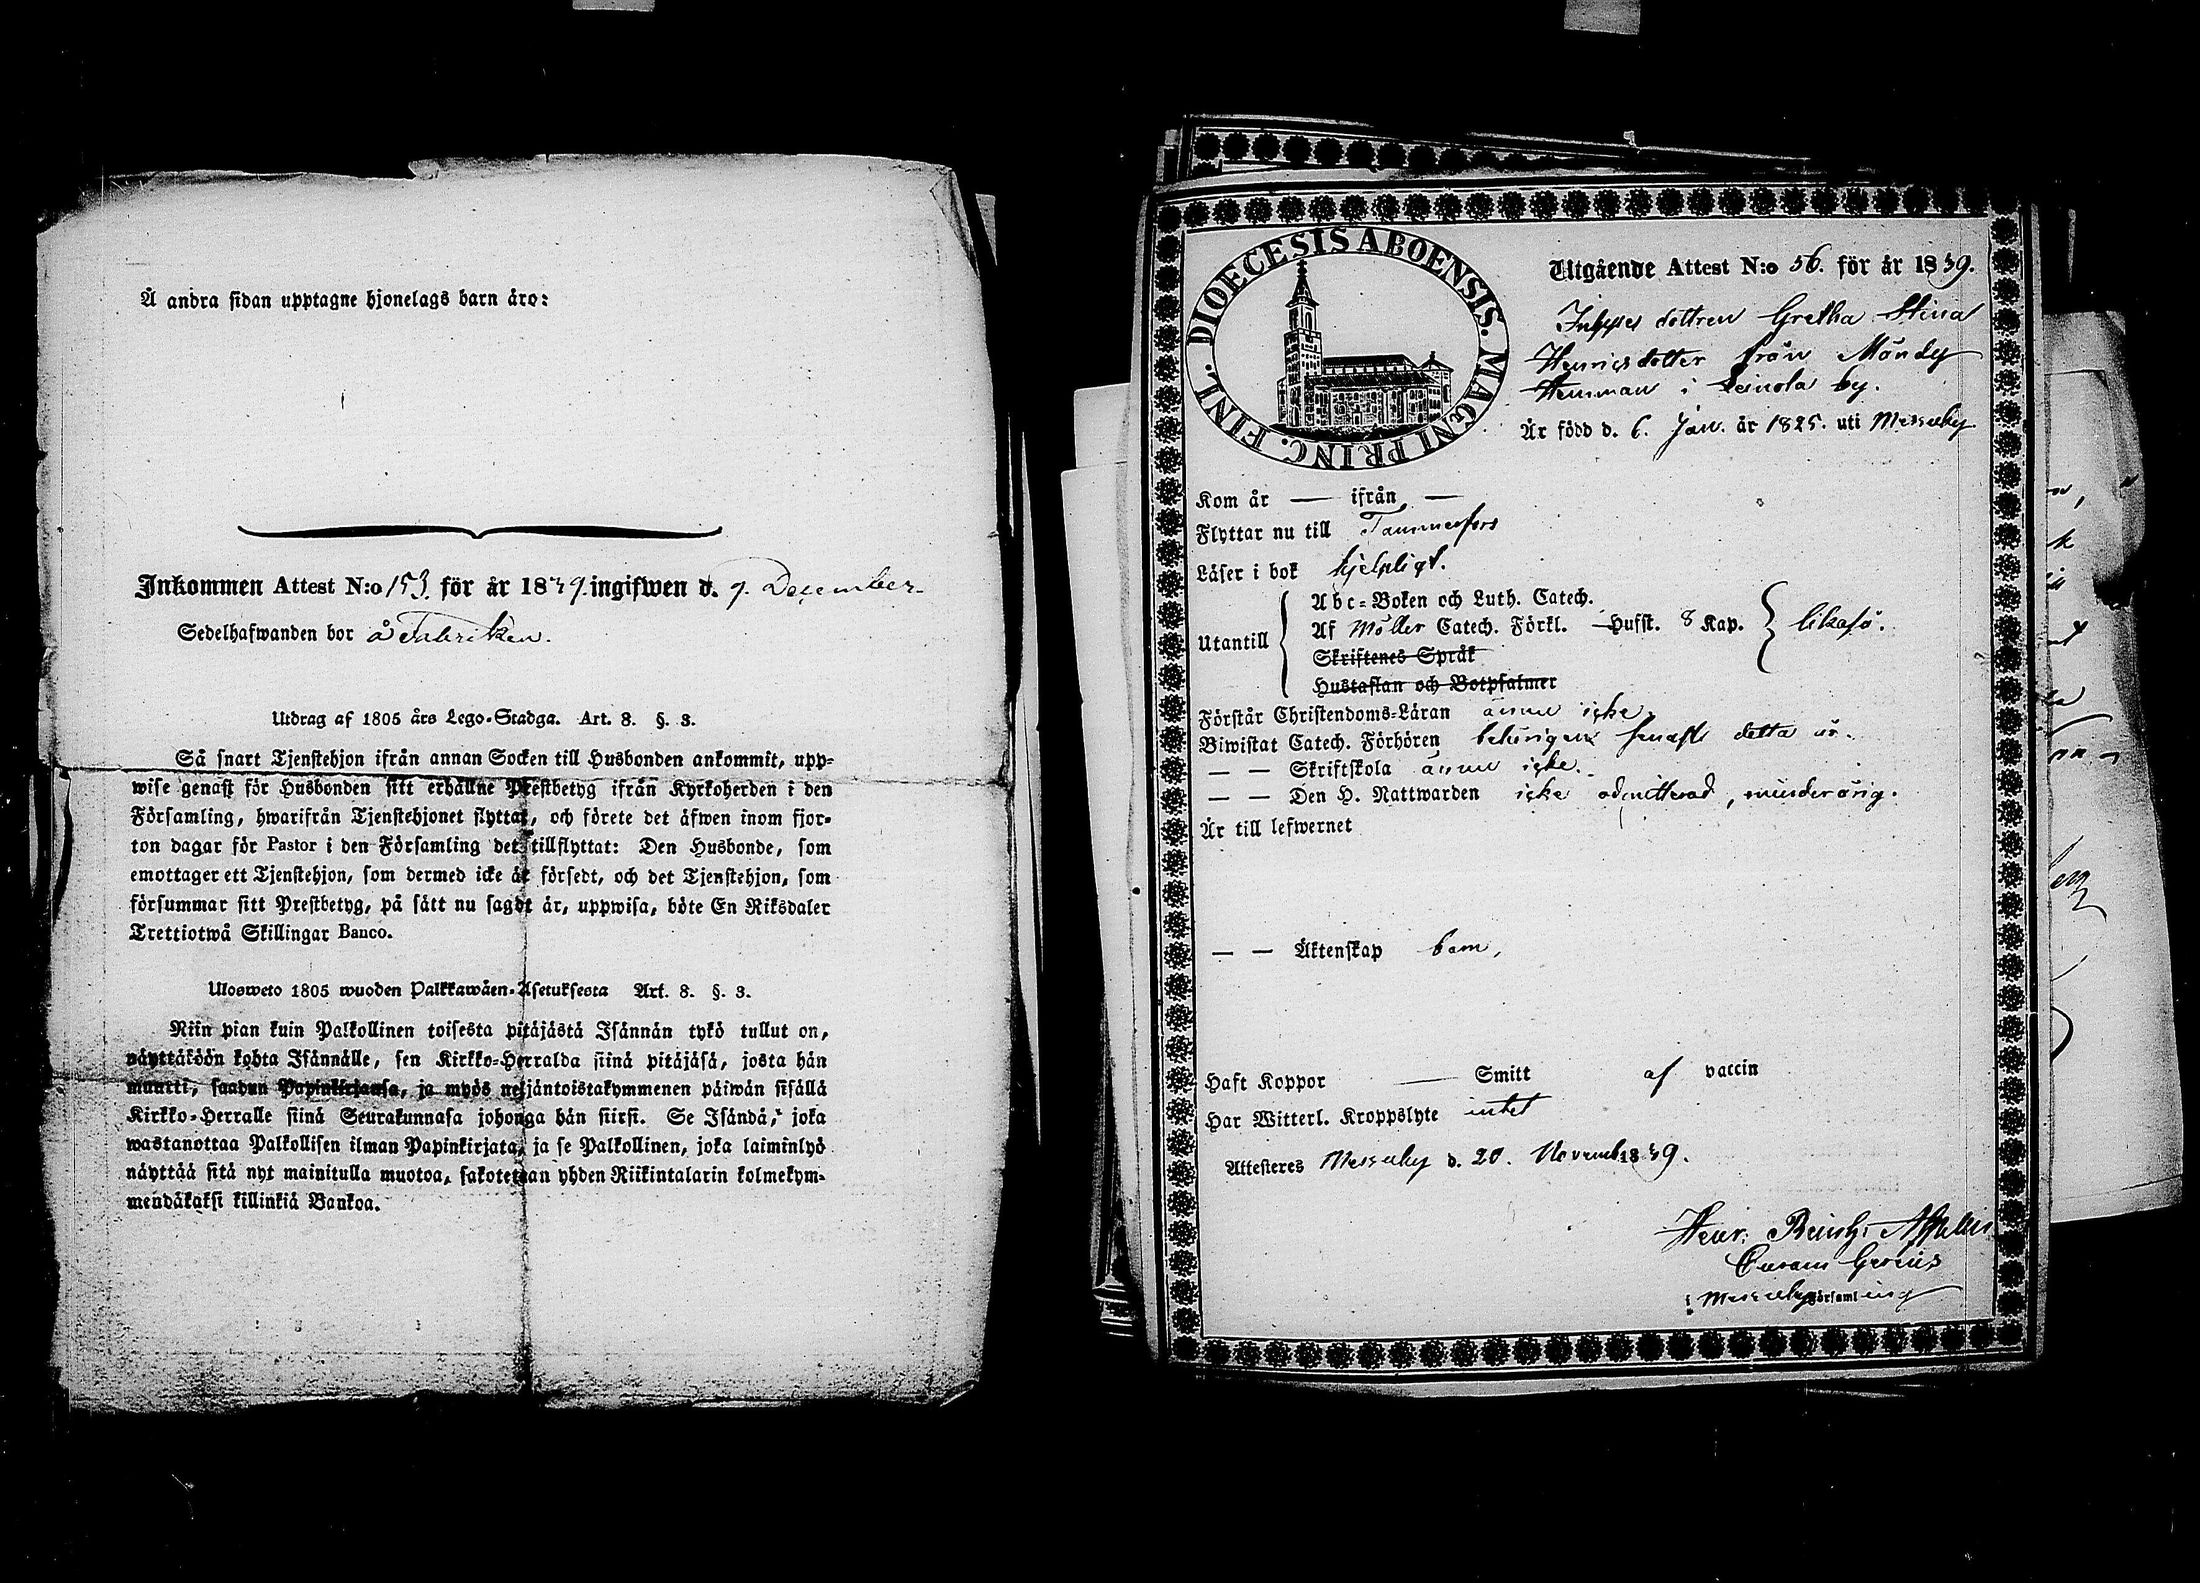 Å andra sidan upptagne hjonelags barn äro:
Inkommen Attest N:o 153. för år 1839. ingifwen d. 9. December.
Sedelhafwanden bor å Fabriken.
Utdrag af 1805 års Lego-Stadga. Art. 8. §. 3.
Så snart Tjenstehjon ifrån annan Socken till Husbonden ankommit, upp-
wise genast för Husbonden sitt erhållne Prestbetyg ifrån Kyrkoherden i den
Församling, hwarifrån Tjenstehjonet flyttat, och förete det äfwen inom fjor-
ton dagar för Pastor i den Församling det tillflyttat: Den Husbonde, som
emottager ett Tjenstehjon, som dermed icke är försedt, och det Tjenstehjon, som
försummar sitt Prestbetyg, på sätt nu sagdt är, uppwisa, böte En Riksdaler
Trettiotwå Skillingar Banco.
Ulosweto 1805 wuoden Palkkawäen-Asetuksesta Art. 8. §. 3.
Niin pian kuin Palkollinen toisesta pitäjästä Isännän tykö tullut on,
näyttäköön kohta Isännälle, sen Kirkko-Herralda siinä pitäjäsä, josta hän
muutti, saadun Papinkirjansa, ja myös neljäntoistakymmenen päiwän sisällä
Kirkko-Herralle siinä Seurakunnasa johonga hän siirsi. Se Isändä, joka
wastanottaa Palkollisen ilman Papinkirjata, ja se Palkollinen, joka laiminlyö
näyttää sitä nyt mainitulla muotoa, sakotetaan yhden Riikintalarin kolmekym-
mendäkaksi killinkiä Bankoa.
DIOECESIS ABOENSIS. MAGNI PRINC. FINL.
Utgående Attest N:o 56. för år 1839.
dottren Gretha Stina
Henricsdotter från Mändy
Hemman i Leinola by.
Är född d. 6. Jan. år 1825. uti Messuby
Kom år — ifrån —
Flyttar nu till Tammerfors
Läser i bok hjelpligt.
Utantill
Abc-Boken och Luth. Catech.
Af Möller Catech. Förkl. Husst. 8 Kap. likaså.
Skriftenes Språk
Hustaflan och Botpsalmer
Förstår Christendoms-Läran ännu icke.
Biwistat Catech. Förhören behörigen senast detta år.
— — Skriftskola ännu icke.
— — Den H. Nattwarden icke admitterad, minderårig.
Är till lefwernet
— — Äktenskap barn,
Haft Koppor — Smitt af vaccin
Har Witterl. Kroppslyte intet
Attesteres Messuby d. 20. November 1839.
Henr. Reinh.
Curam Gerens
i Messuby församling